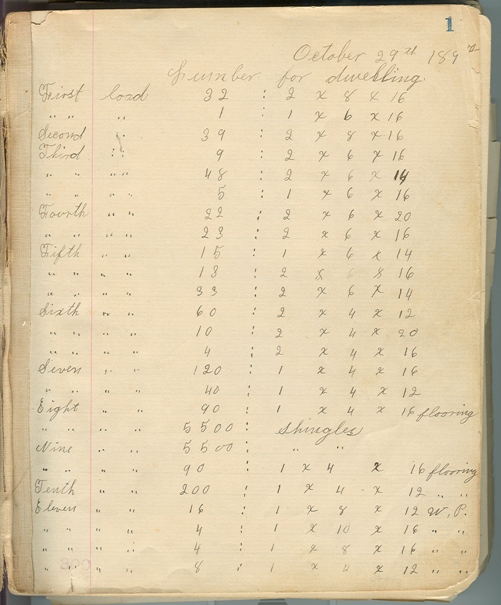 1
October 29th 189
Lumber for dwelling
First load 32 : 2 x 8 x 16
" " " 1 : 1 x 6 x 16
Second " 39 : 2 x 8 x 16
Third " 9 : 2 x 6 x 16
" " " " 48 : 2 x 6 x 14
" " " " 5 : 1 x 6 x 16
Fourth " " 22 : 2 x 6 x 20
" " " " 23 : 2 x 6 x 16
Fifth " " 15 : 1 x 6 x 14
" " " " 13 : 2 x 6 x 16
" " " " 33 : 2 x 6 x 14
Sixth " " 60 : 2 x 4 x 12
" " " " 10 : 2 x 4 x 20
" " " " 4 : 2 x 4 x 16
Seven " " 120 : 1 x 4 x 16
" " " " 40 : 1 x 4 x 12
Eight " " 90 : 1 x 4 x 16 flooring
" " " " 5500 : Shingles
Nine " " 5500 : " "
" " " " 90 : 1 x 4 x 16 flooring
Tenth " " 200 : 1 x 4 x 12 " "
Eleven " " 16 : 1 x 8 x 12 W. P.
" " " " 4 : 1 x 10 x 16 " "
" " " " 4 : 1 x 8 x 16 " "
" " " " 8 : 1 x 4 x 12 " "